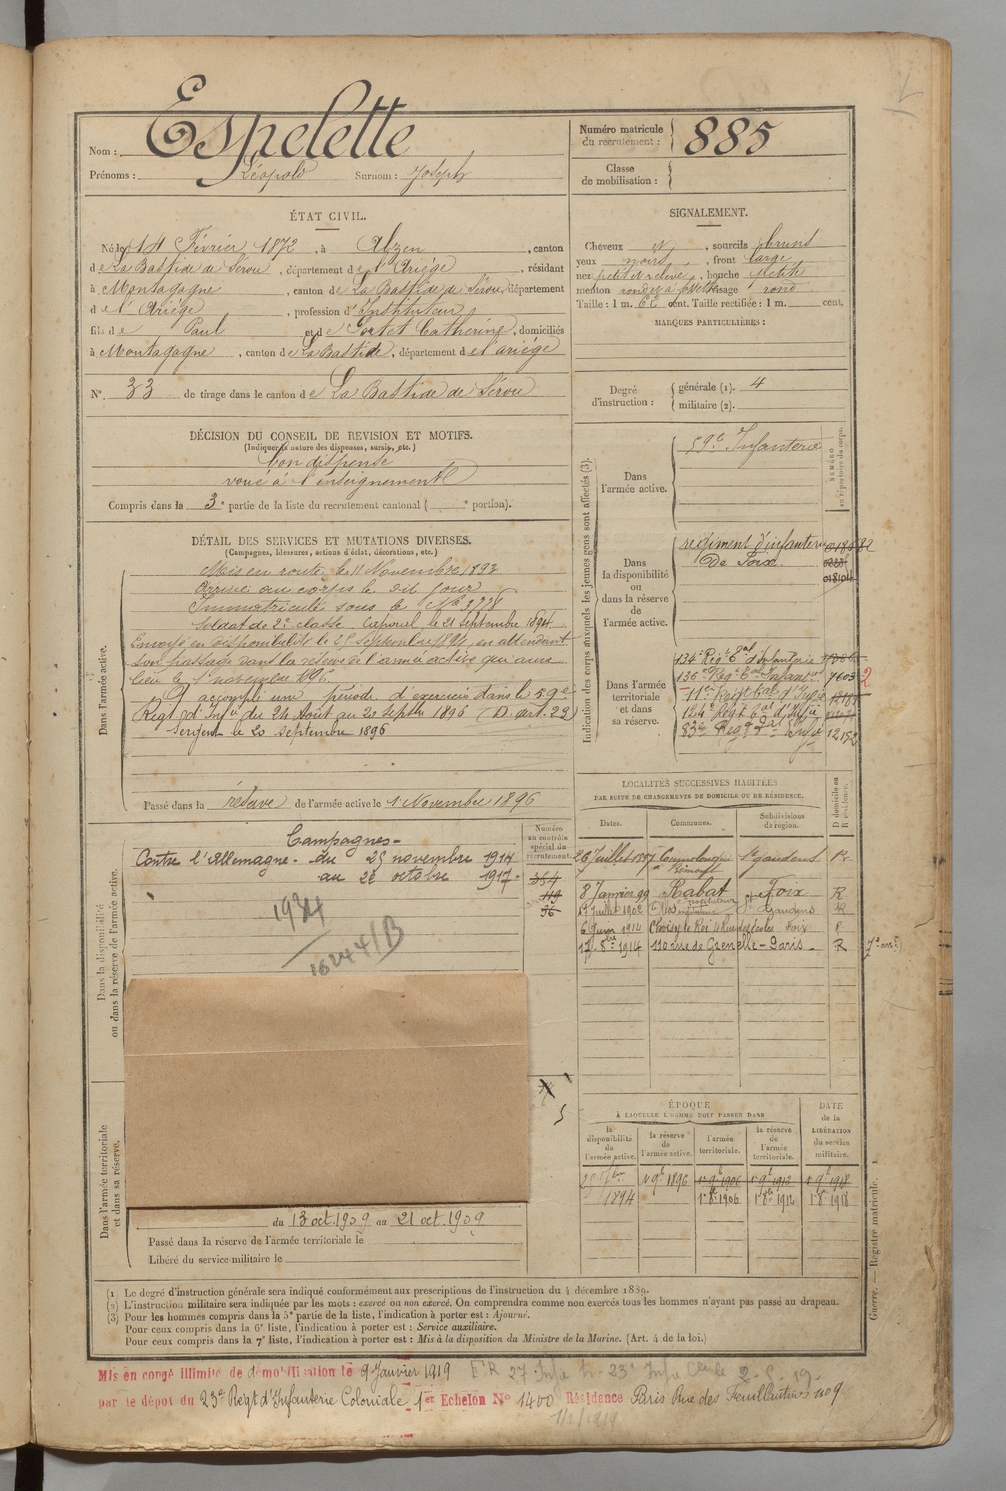 Nom : Espelette
Prénoms : Léopold Surnom : Joseph
Numéro matricule du recrutement : 885
Classe de mobilisation :
ÉTAT CIVIL.
Né le 14 Février 1872, à Alzen, canton
de La Bastide de Sérou, département de l'Ariège, résidant
à Montagagne, canton de La Bastide de Sérou, département
de l'Ariège, profession d'Instituteur
fils de Paul et de Portet Catherine, domiciliés
à Montagagne, canton de La Bastide, département de l'ariège
N° 33 de tirage dans le canton de La Bastide de Sérou
SIGNALEMENT.
Cheveux , sourcils bruns
yeux noirs, front large
nez petit et relevé, bouche petite
menton rond visage rond
Taille : 1 m. 62 cent. Taille rectifiée : 1 m. cent.
MARQUES PARTICULIÈRES :
Degré d'instruction : générale (1). 4
militaire (2).
DÉCISION DU CONSEIL DE REVISION ET MOTIFS.
(Indiquer la nature des dispenses, sursis, etc.)
bon dispensé
voué à l'enseignement
Compris dans la 3e partie de la liste du recrutement cantonal ( e portion).
DÉTAIL DES SERVICES ET MUTATIONS DIVERSES.
(Campagnes, blessures, actions d'éclat, décorations, etc.)
Dans l'armée active.
Mis en route le 11 Novembre 1893
Arrivé au corps le dit jour
Immatriculé sous le No 3778
Soldat de 2e classe. Caporal le 21 Septembre 1894
Envoyé en disponibilité le 25 septembre 1894, en attendant
son passage dans la réserve de l'armée active qui aura
lieu le 1er novembre 1896.
A accompli une période d'exercices dans le 59e
Regt d'Infie du 24 Août au 20 septbre 1896 (D. art. 22)
Sergent le 20 septembre 1896
Passé dans la réserve de l'armée active le 1er Novembre 1896
Indication des corps auxquels les jeunes gens sont affectés (3).
NUMÉRO au répertoire du corps.
Dans l'armée active.
59e Infanterie
Dans la disponibilité ou dans la réserve de l'armée active.
régiment d'infanterie
De Foix.
Dans l'armée territoriale et dans sa réserve.
134e Régt tal d'infanterie
136e Regt tal Infantie 7603 2
11e Regt tal d'Infie
124e Régt tal d'Infie
83e Regt tal Infie 12152
Dans la disponibilité ou dans la réserve de l'armée active.
Numéro au contrôle spécial du recrutement
Campagnes -
Contre l'Allemagne - du 25 novembre 1914
au 22 octobre 1917 -
354
119
36
1934
16244/B
LOCALITÉS SUCCESSIVES HABITÉES
PAR SUITE DE CHANGEMENTS DE DOMICILE OU DE RÉSIDENCE.
Dates. Communes. Subdivisions de région. D domicile ou R résidence.
26 Juillet 1897 St gaudens R
8 Janvier 99 Rabat Foix R
Juillet 1902 St Gaudens R
6 Juin 1914 Choisy le Roi 4 Rue des écoles Foix R
17 8bre 1914 110 rue de Grenelle - Paris - R
Dans l'armée territoriale et dans sa réserve.
du 13 oct. 1909 au 21 oct. 1909
Passé dans la réserve de l'armée territoriale le
Libéré du service militaire le
ÉPOQUE
À LAQUELLE L'HOMME DOIT PASSER DANS
DATE de la LIBÉRATION du service militaire.
la disponibilité de l'armée active. la réserve de l'armée active. l'armée territoriale. la réserve de l'armée territoriale.
25 7bre 1894 1er 9bre 1896 1er 9bre 1906 1er 9bre 1912 1er 9bre 1918
1er 8bre 1906 1er 8bre 1912 1er 8bre 1918
(1) Le degré d'instruction générale sera indiqué conformément aux prescriptions de l'instruction du 4 décembre 1889.
(2) L'instruction militaire sera indiquée par les mots : exercé ou non exercé. On comprendra comme non exercés tous les hommes n'ayant pas passé au drapeau.
(3) Pour les hommes compris dans la 5e partie de la liste, l'indication à porter est : Ajourné.
Pour ceux compris dans la 6e liste, l'indication à porter est : Service auxiliaire.
Pour ceux compris dans la 7e liste, l'indication à porter est : Mis à la disposition du Ministre de la Marine. (Art. 4 de la loi.)
Guerre. — Registre matricule. 1.
Mis en congé illimité de démobilisation le 9 Janvier 1919
par le dépot du 23e Regt d'Infanterie Coloniale 1er Echelon N° 1400 Résidence Paris Rue des Feuillantines n° 9
1/1/1919